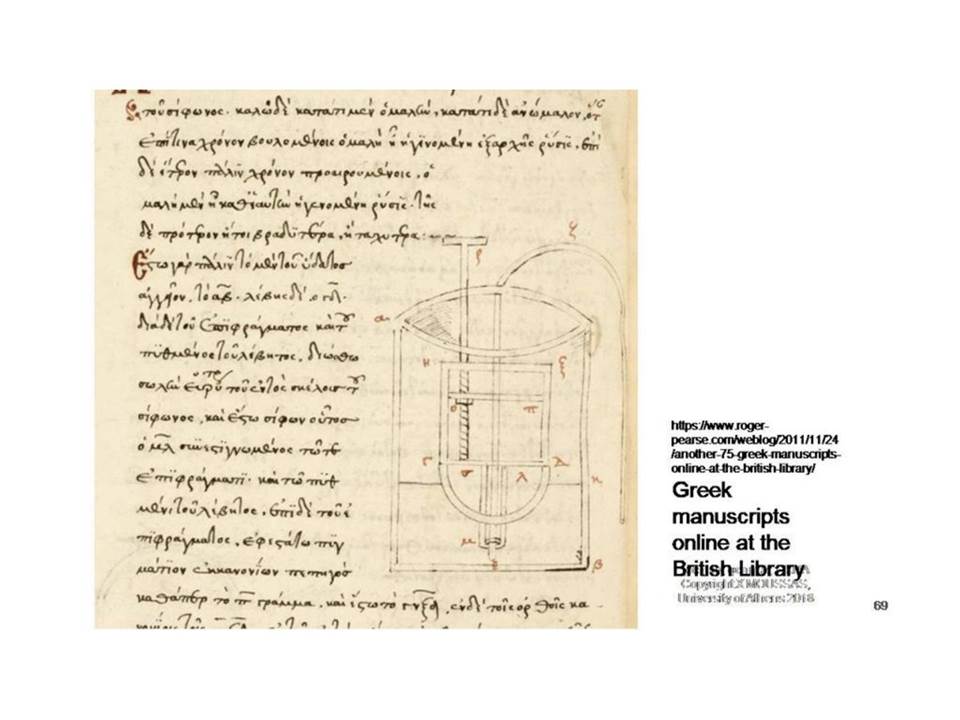 τοῦ σίφωνος. καλῶ δὲ κατά τι μὲν ὁμαλὴν, κατά τι δὲ ἀνώμαλον, ὅτ
ἐπί τινα χρόνον βουλομένοις ὁμαλὴ ᾖ ἡ γινομένη ἐξ ἀρχῆς ῥύσις, ἐπὶ
δὲ ἕτερον πάλιν χρόνον προαιρουμένοις, ὁ
μαλὴ μὲν ᾖ καθ' ἑαυτὴν ἡ γενομένη ῥύσις. τῆς
δὲ πρότερον ἤτοι βραδυτέρα, ἢ ταχυτέρα:
Ἔστω γὰρ πάλιν τὸ μὲν τοῦ ὕδατος
ἀγγεῖον, τὸ αβ. λέβης δὲ, ὁ γδ.
διὰ δὲ τοῦ ἐπιφράγματος καὶ τοῦ
πυθμένος τοῦ λέβητος, διώσθω
σωλὴν τοῦ ἐντὸς σκέλους τοῦ
σίφωνος, καὶ ἔστω σίφων οὗτος
ὁ μλ συνεστεγνωμένος τῷ τε
ἐπιφράγματι. καὶ τῷ πυθ
μένι τοῦ λέβητος, ἐπὶ δὲ τοῦ ἐ
πιφράγματος, ἐφεστάτω πηγ
μάτιον ἐκ κανονίων πεπηγός
καθάπερ τὸ π γράμμα, καὶ ἔστω τὸ ἐν δὲ τοῖς ὀρθοῖς κα
ζ
ρ
α
η ξ
ο π
γ σ λ δ
κ
μ
β
https://www.roger-
pearse.com/weblog/2011/11/24
/another-75-greek-manuscripts-
online-at-the-british-library/
Greek
manuscripts
online at the
British Library
Copyright X MOUSSAS,
University of Athens 2018
69